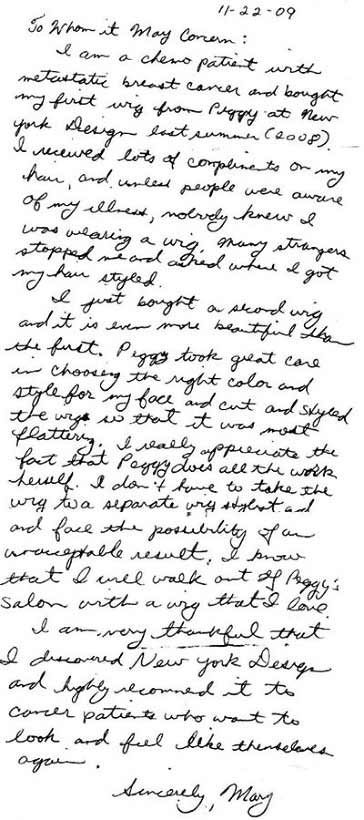 11-22-09
To Whom it May Concern:
I am a chemo patient with
metastatic breast cancer and bought
my first wig from Peggy at New
York Design last summer (2008).
I received lots of compliments on my
hair, and unless people were aware
of my illness, nobody knew I
was wearing a wig. Many strangers
stopped me and asked where I got
my hair styled.
I just bought a second wig
and it is even more beautiful than
the first. Peggy took great care
in choosing the right color and
style for my face and cut and styled
the wig so that it was most
flattering. I really appreciate the
fact that Peggy does all the work
herself. I don't have to take the
wig to a separate wig stylist and
and face the possibility of an
unacceptable result. I know
that I will walk out of Peggy's
salon with a wig that I love.
I am very thankful that
I discovered New York Design
and highly recommed it to
cancer patients who want to
look and feel like themselves
again.
Sincerely, Mary